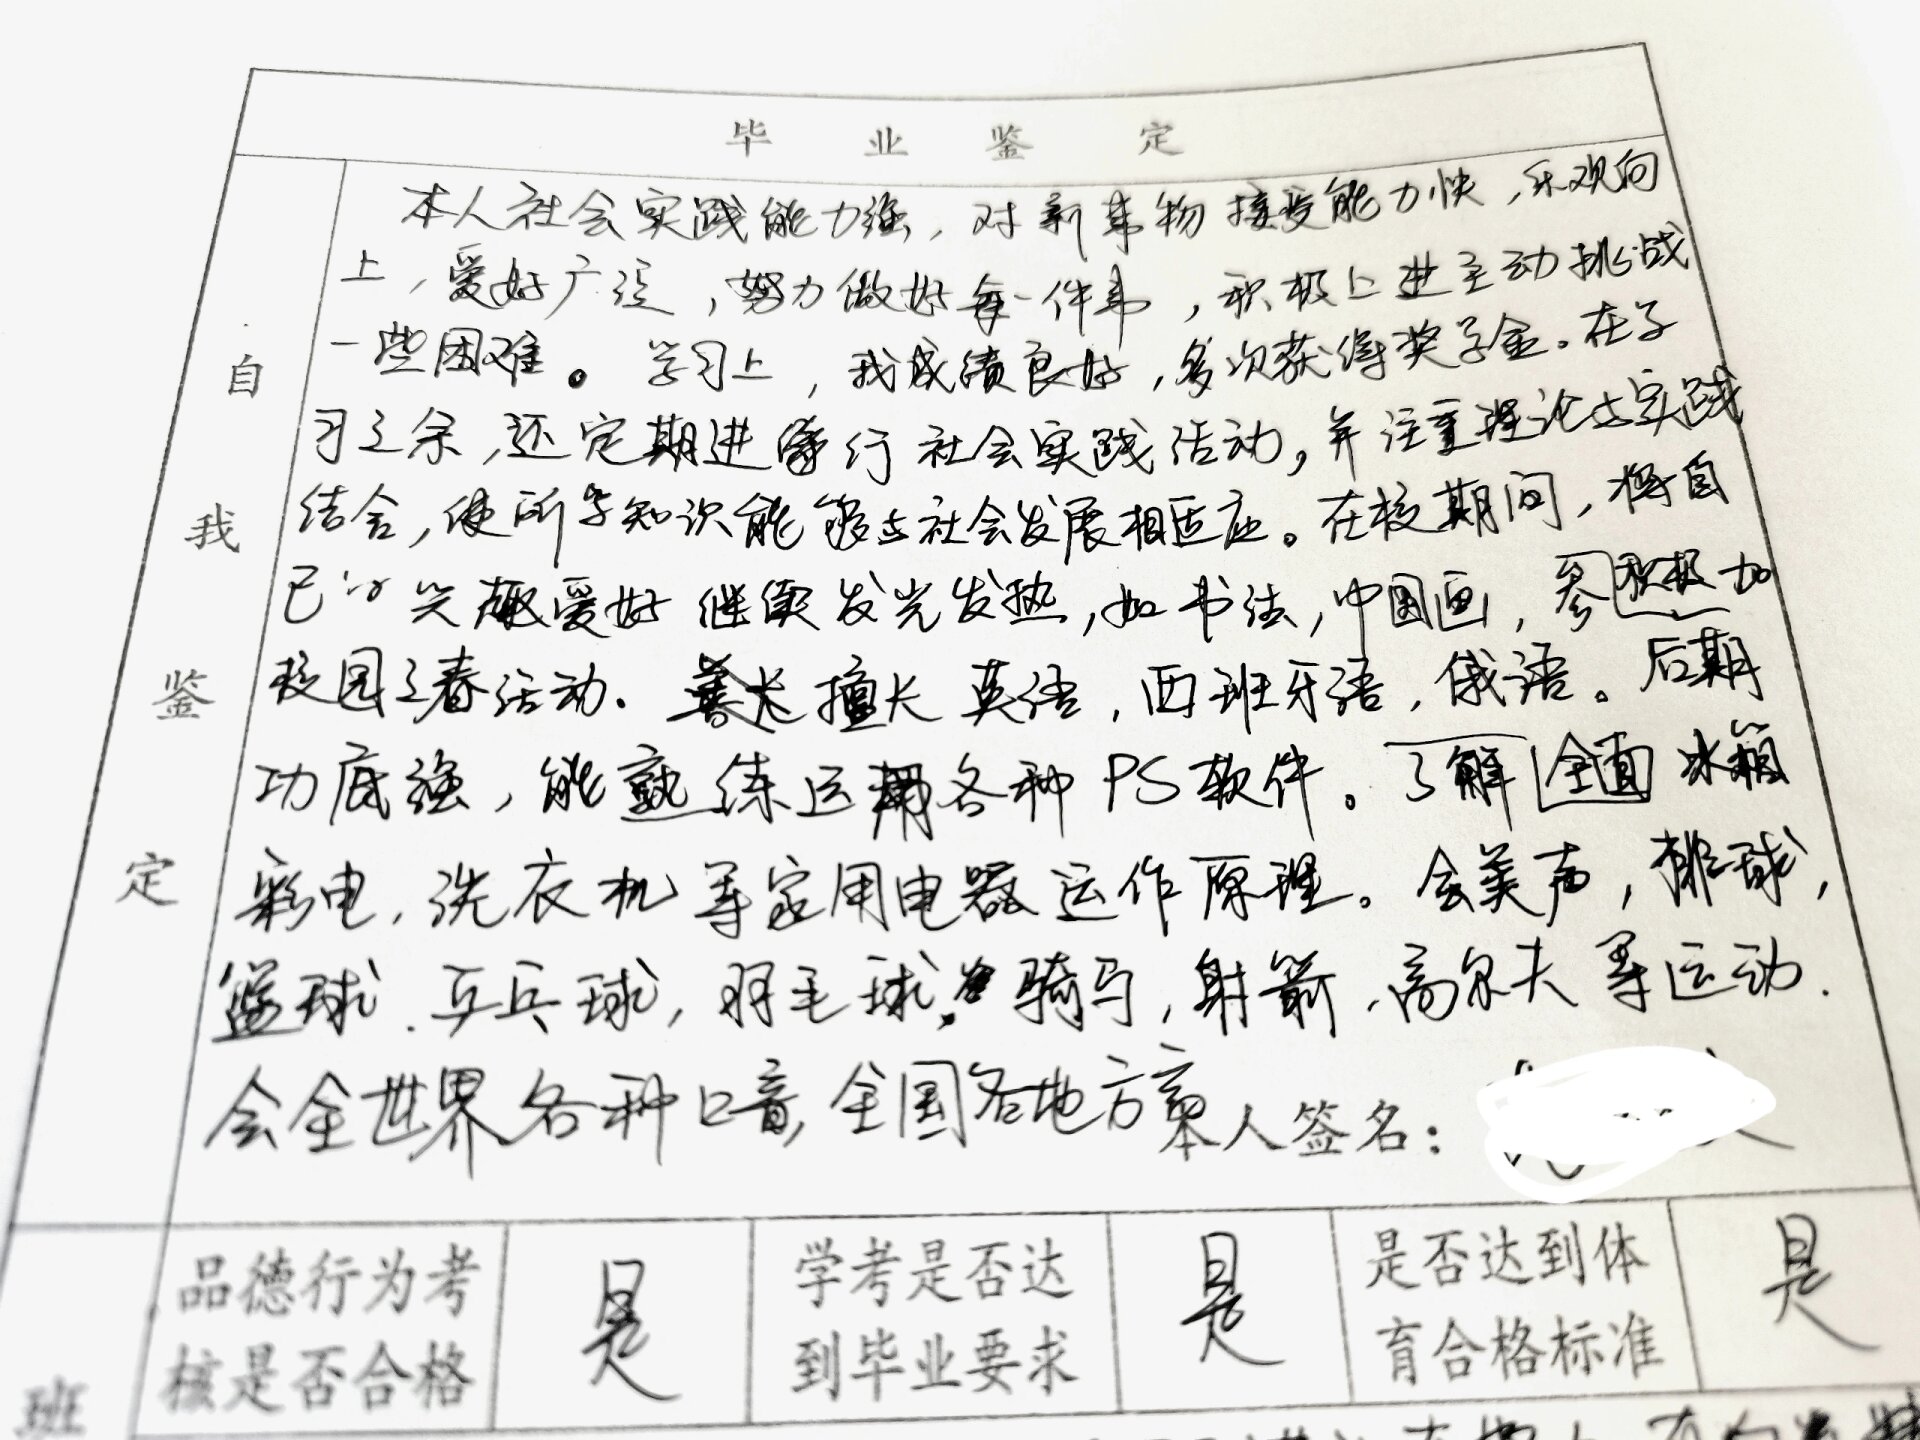 毕业鉴定
自我鉴定
本人社会实践能力强，对新事物接受能力快，乐观向
上，爱好广泛，努力做好每一件事，积极上进主动挑战
一些困难。学习上，我成绩良好，多次获得奖学金。在学
习之余，还定期进行社会实践活动，并注重理论与实践
结合，使所学知识能够与社会发展相适应。在校期间，将自
己的兴趣爱好继续发光发热，如书法，中国画，参积极加
校园之春活动。擅长英语，西班牙语，俄语。后期
功底强，能熟练运用各种PS软件。了解全面冰箱
彩电，洗衣机等家用电器运作原理。会美声，排球，
篮球．乒乓球，羽毛球，骑马，射箭，高尔夫等运动．
会全世界各种口音，全国各地方言
本人签名：
品德行为考
核是否合格
是
学考是否达
到毕业要求
是
是否达到体
育合格标准
是
班